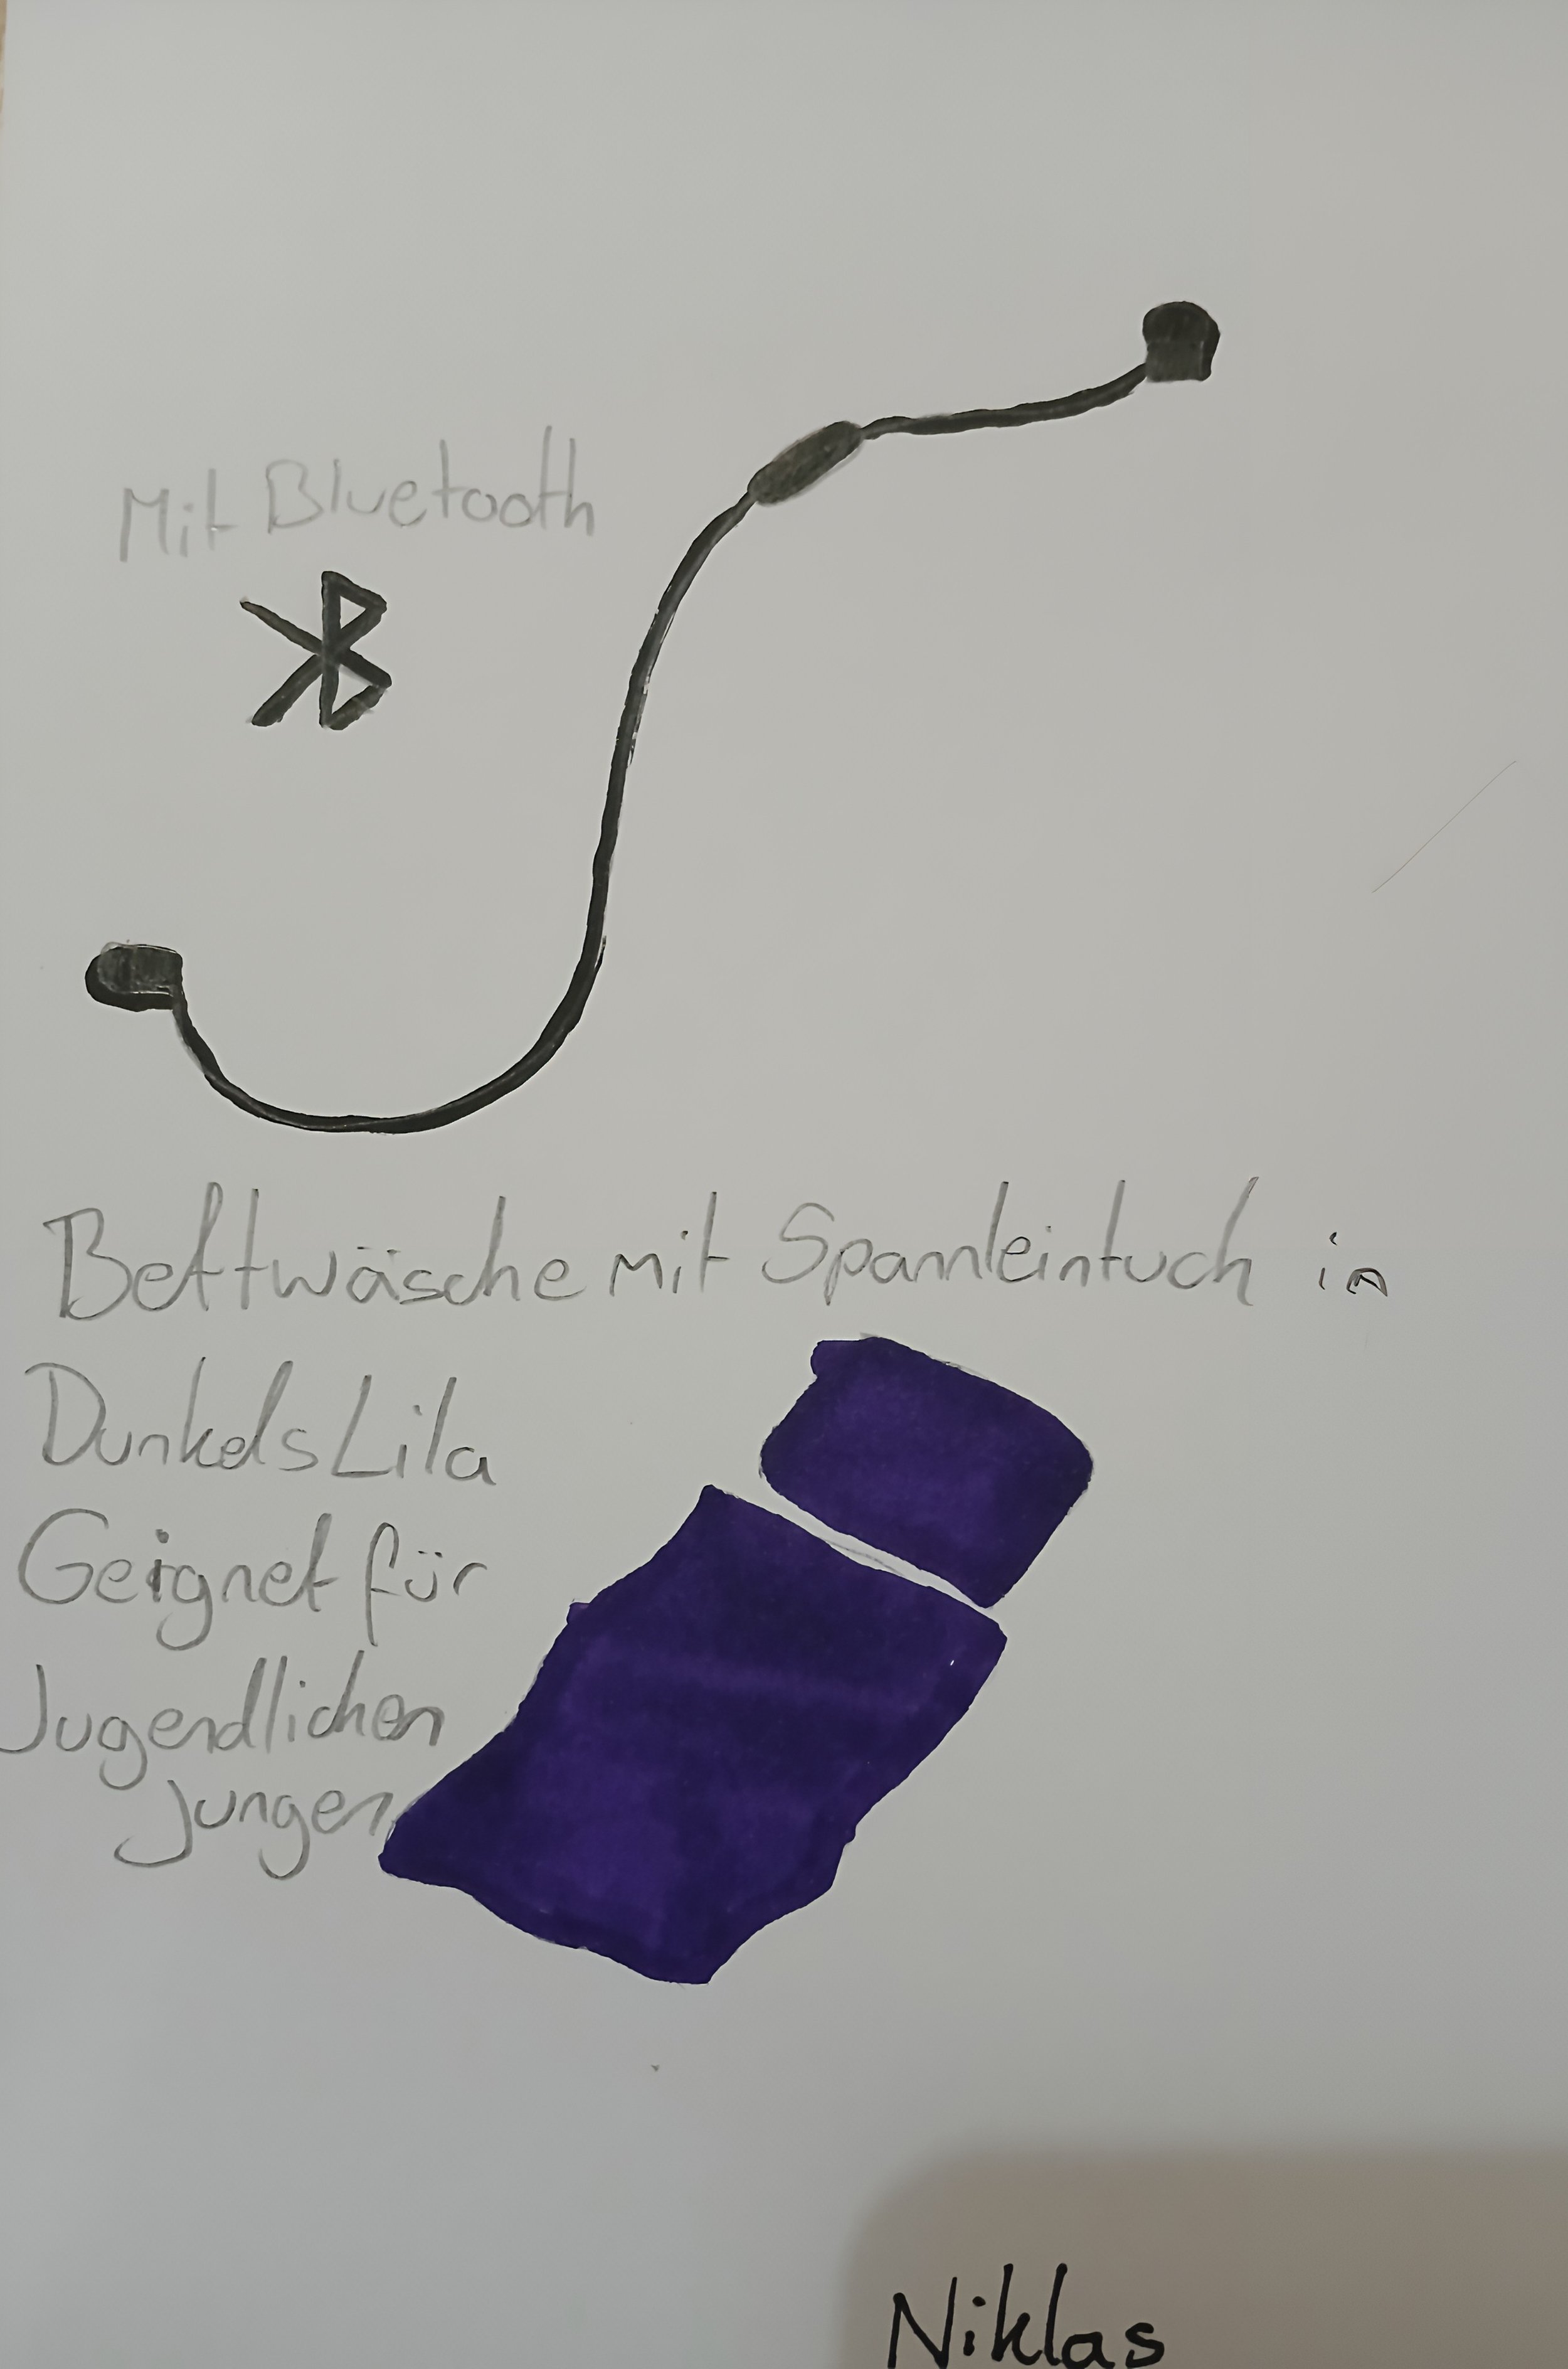 Mit Bluetooth
Bettwäsche mit Spannleintuch in
Dunkels Lila
Geignet für
Jugendlichen
jungen
Niklas